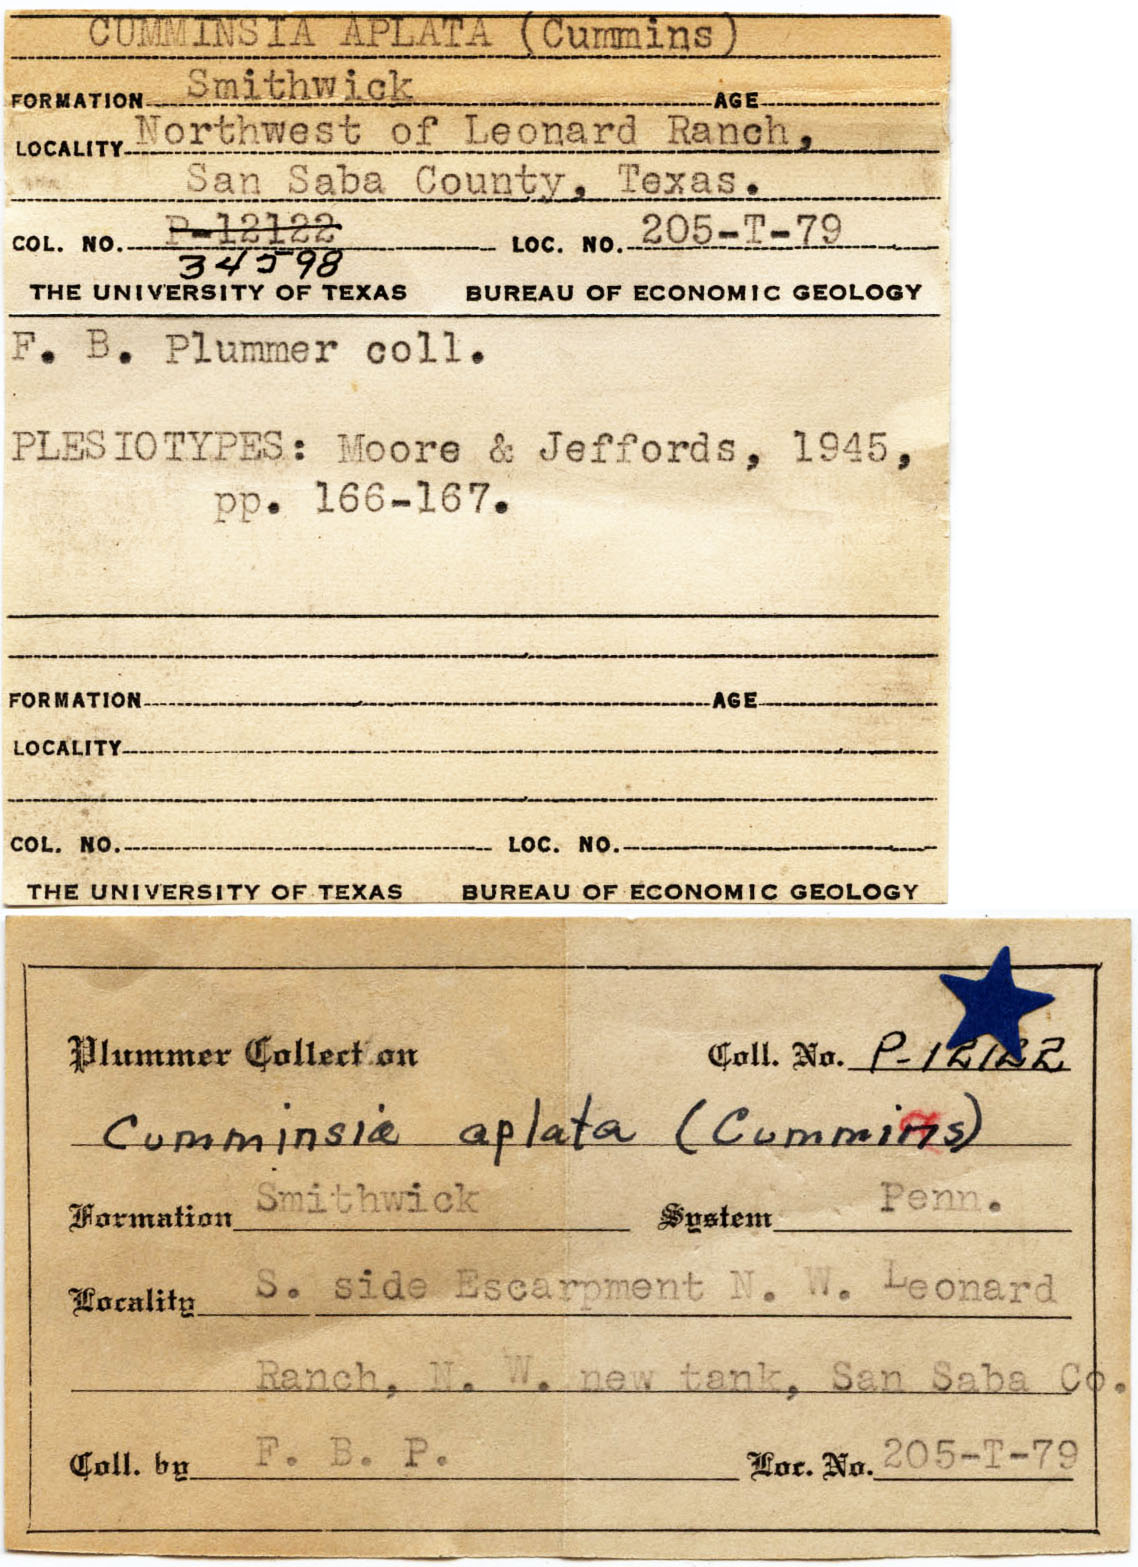 CUMMINSIA APLATA (Cummins)
FORMATION Smithwick AGE
LOCALITY Northwest of Leonard Ranch,
San Saba County, Texas.
COL. NO. P-12122 LOC. NO. 205-T-79
34598
THE UNIVERSITY OF TEXAS BUREAU OF ECONOMIC GEOLOGY
F. B. Plummer coll.
PLESIOTYPES: Moore & Jeffords, 1945,
pp. 166-167.
FORMATION AGE
LOCALITY
COL. NO. LOC. NO.
THE UNIVERSITY OF TEXAS BUREAU OF ECONOMIC GEOLOGY
Plummer Collect on Coll. No. P-12122
Cumminsia aplata (Cummins)
Formation Smithwick System Penn.
Locality S. side Escarpment N. W. Leonard
Ranch, N. W. new tank, San Saba Co.
Coll. by F. B. P. Loc. No. 205-T-79